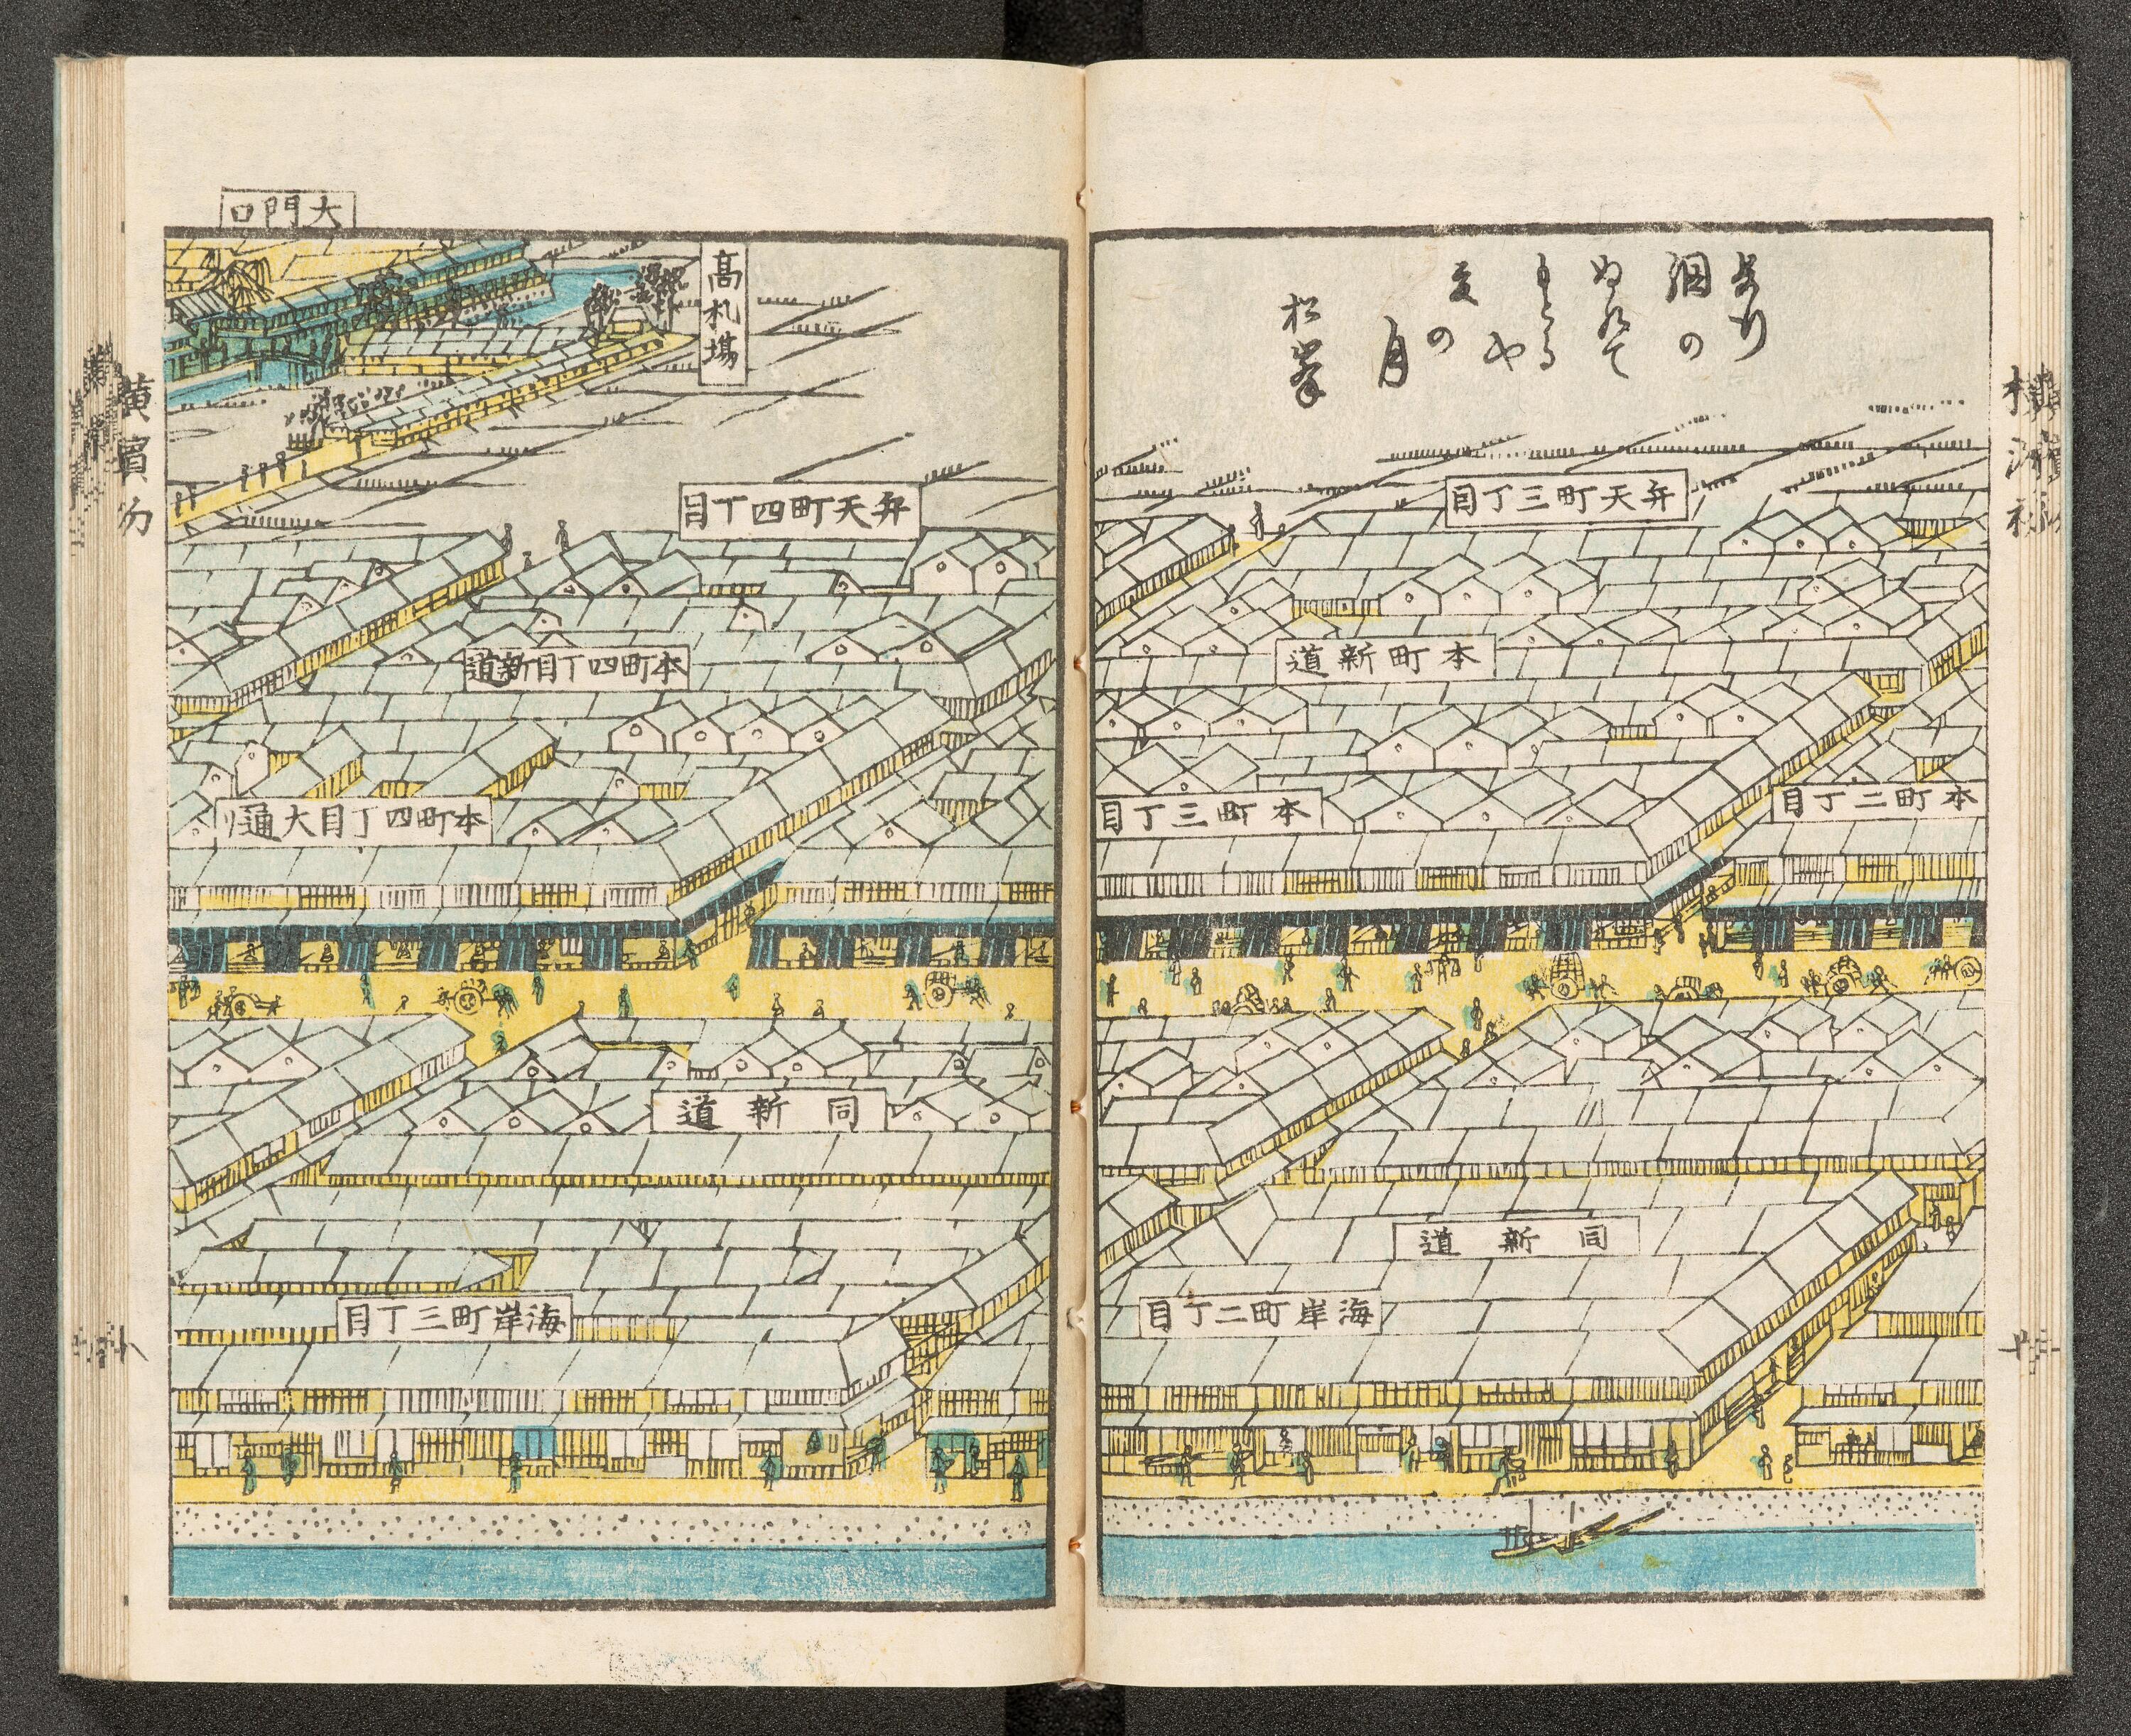 畑の
ぬれて
もとるや
夏の
月
松峯
弁天町三丁目
本町新道
本町二丁目
本町三丁目
同新道
海岸町二丁目
大門口
高札場
弁天町四丁目
本町四丁目新道
本町四丁目大通り
同新道
海岸町三丁目